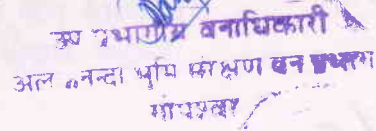 उप प्रभागीय वनाधिकारी
अलकनन्दा भूमि संरक्षण वन प्रभाग
गोपेश्वर